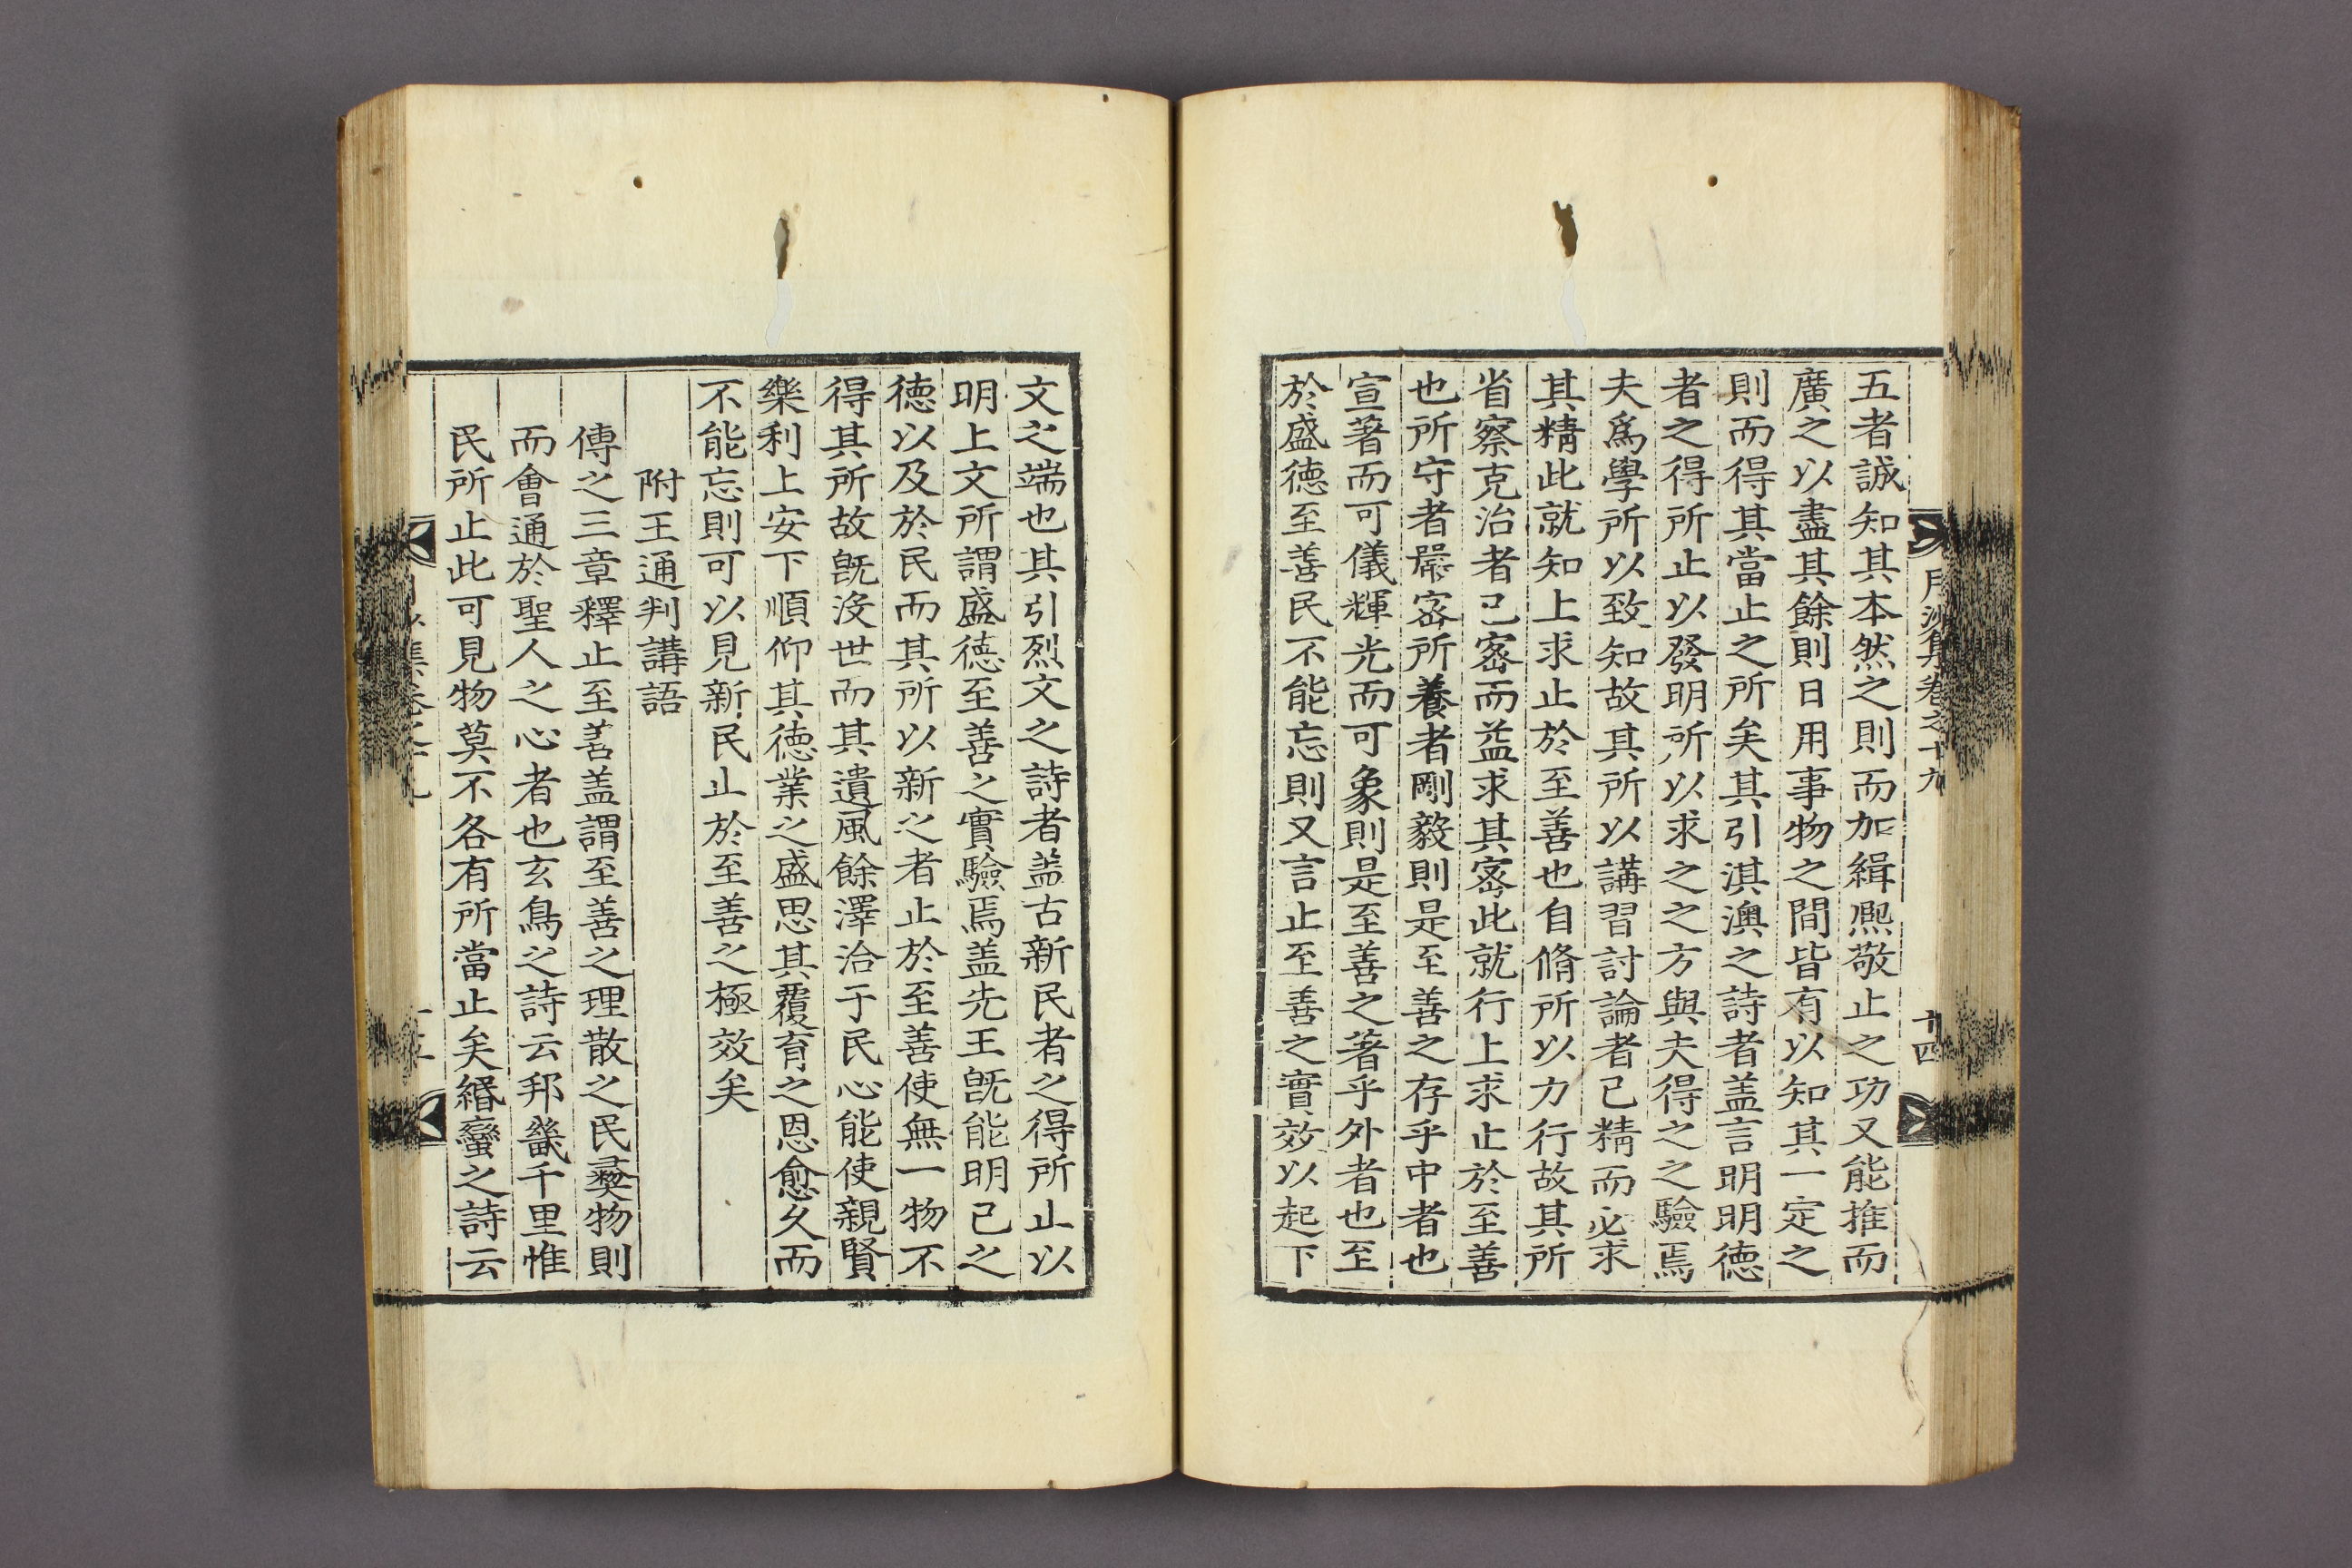 月沙集卷之十九
十四
五者誠知其本然之則而加緝熈敬止之功又能推而
廣之以盡其餘則日用事物之間皆有以知其一定之
則而得其當止之所矣其引淇澳之詩者盖言明明德
者之得所止以發明所以求之之方與夫得之之驗焉
夫爲學所以致知故其所以講習討論者已精而必求
其精此就知上求止於至善也自脩所以力行故其所
省察克治者已密而益求其密此就行上求止於至善
也所守者嚴密所養者剛毅則是至善之存乎中者也
宣著而可儀輝光而可象則是至善之著乎外者也至
於盛德至善民不能忘則又言止至善之實效以起下
文之端也其引烈文之詩者盖古新民者之得所止以
明上文所謂盛德至善之實驗焉盖先王旣能明己之
德以及於民而其所以新之者止於至善使無一物不
得其所故旣沒世而其遺風餘澤洽于民心能使親賢
樂利上安下順仰其德業之盛思其覆育之恩愈久而
不能忘則可以見新民止於至善之極效矣
附王通判講語
傳之三章釋止至善盖謂至善之理散之民彝物則
而會通於聖人之心者也玄鳥之詩云邦畿千里惟
民所止此可見物莫不各有所當止矣緡蠻之詩云